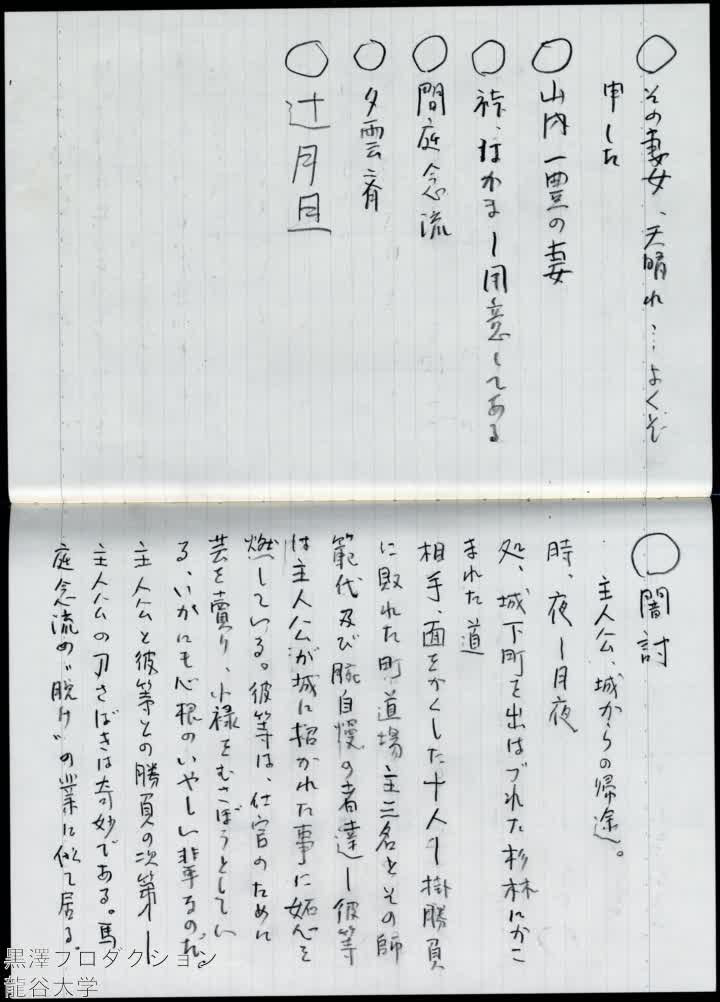 ○その妻女、天晴れ…よくぞ
申した
○山内一豊の妻
○裃、はかまー用意してある
○間庭念流
○夕雲斎
○辻月旦
○闇討
主人公、城からの帰途。
時、夜ー月夜
処、城下町を出はづれた杉林にかこ
まれた道
相手、面をかくした十人ー掛勝負
に敗れた町道場主三名とその師
範代及び腕自慢の者達ー彼等
は主人公が城に招かれた事に妬心を
燃している。彼等は、仕官のために
芸を賣り、小禄をむさぼらうとしてい
る、いかにも心根のいやしい輩なのだ。
主人公と彼等との勝負の次第ー
主人公の刃さばきは奇妙である。馬
庭念流の〝脱け〟の業に似て居る。
黒澤プロダクション
龍谷大学